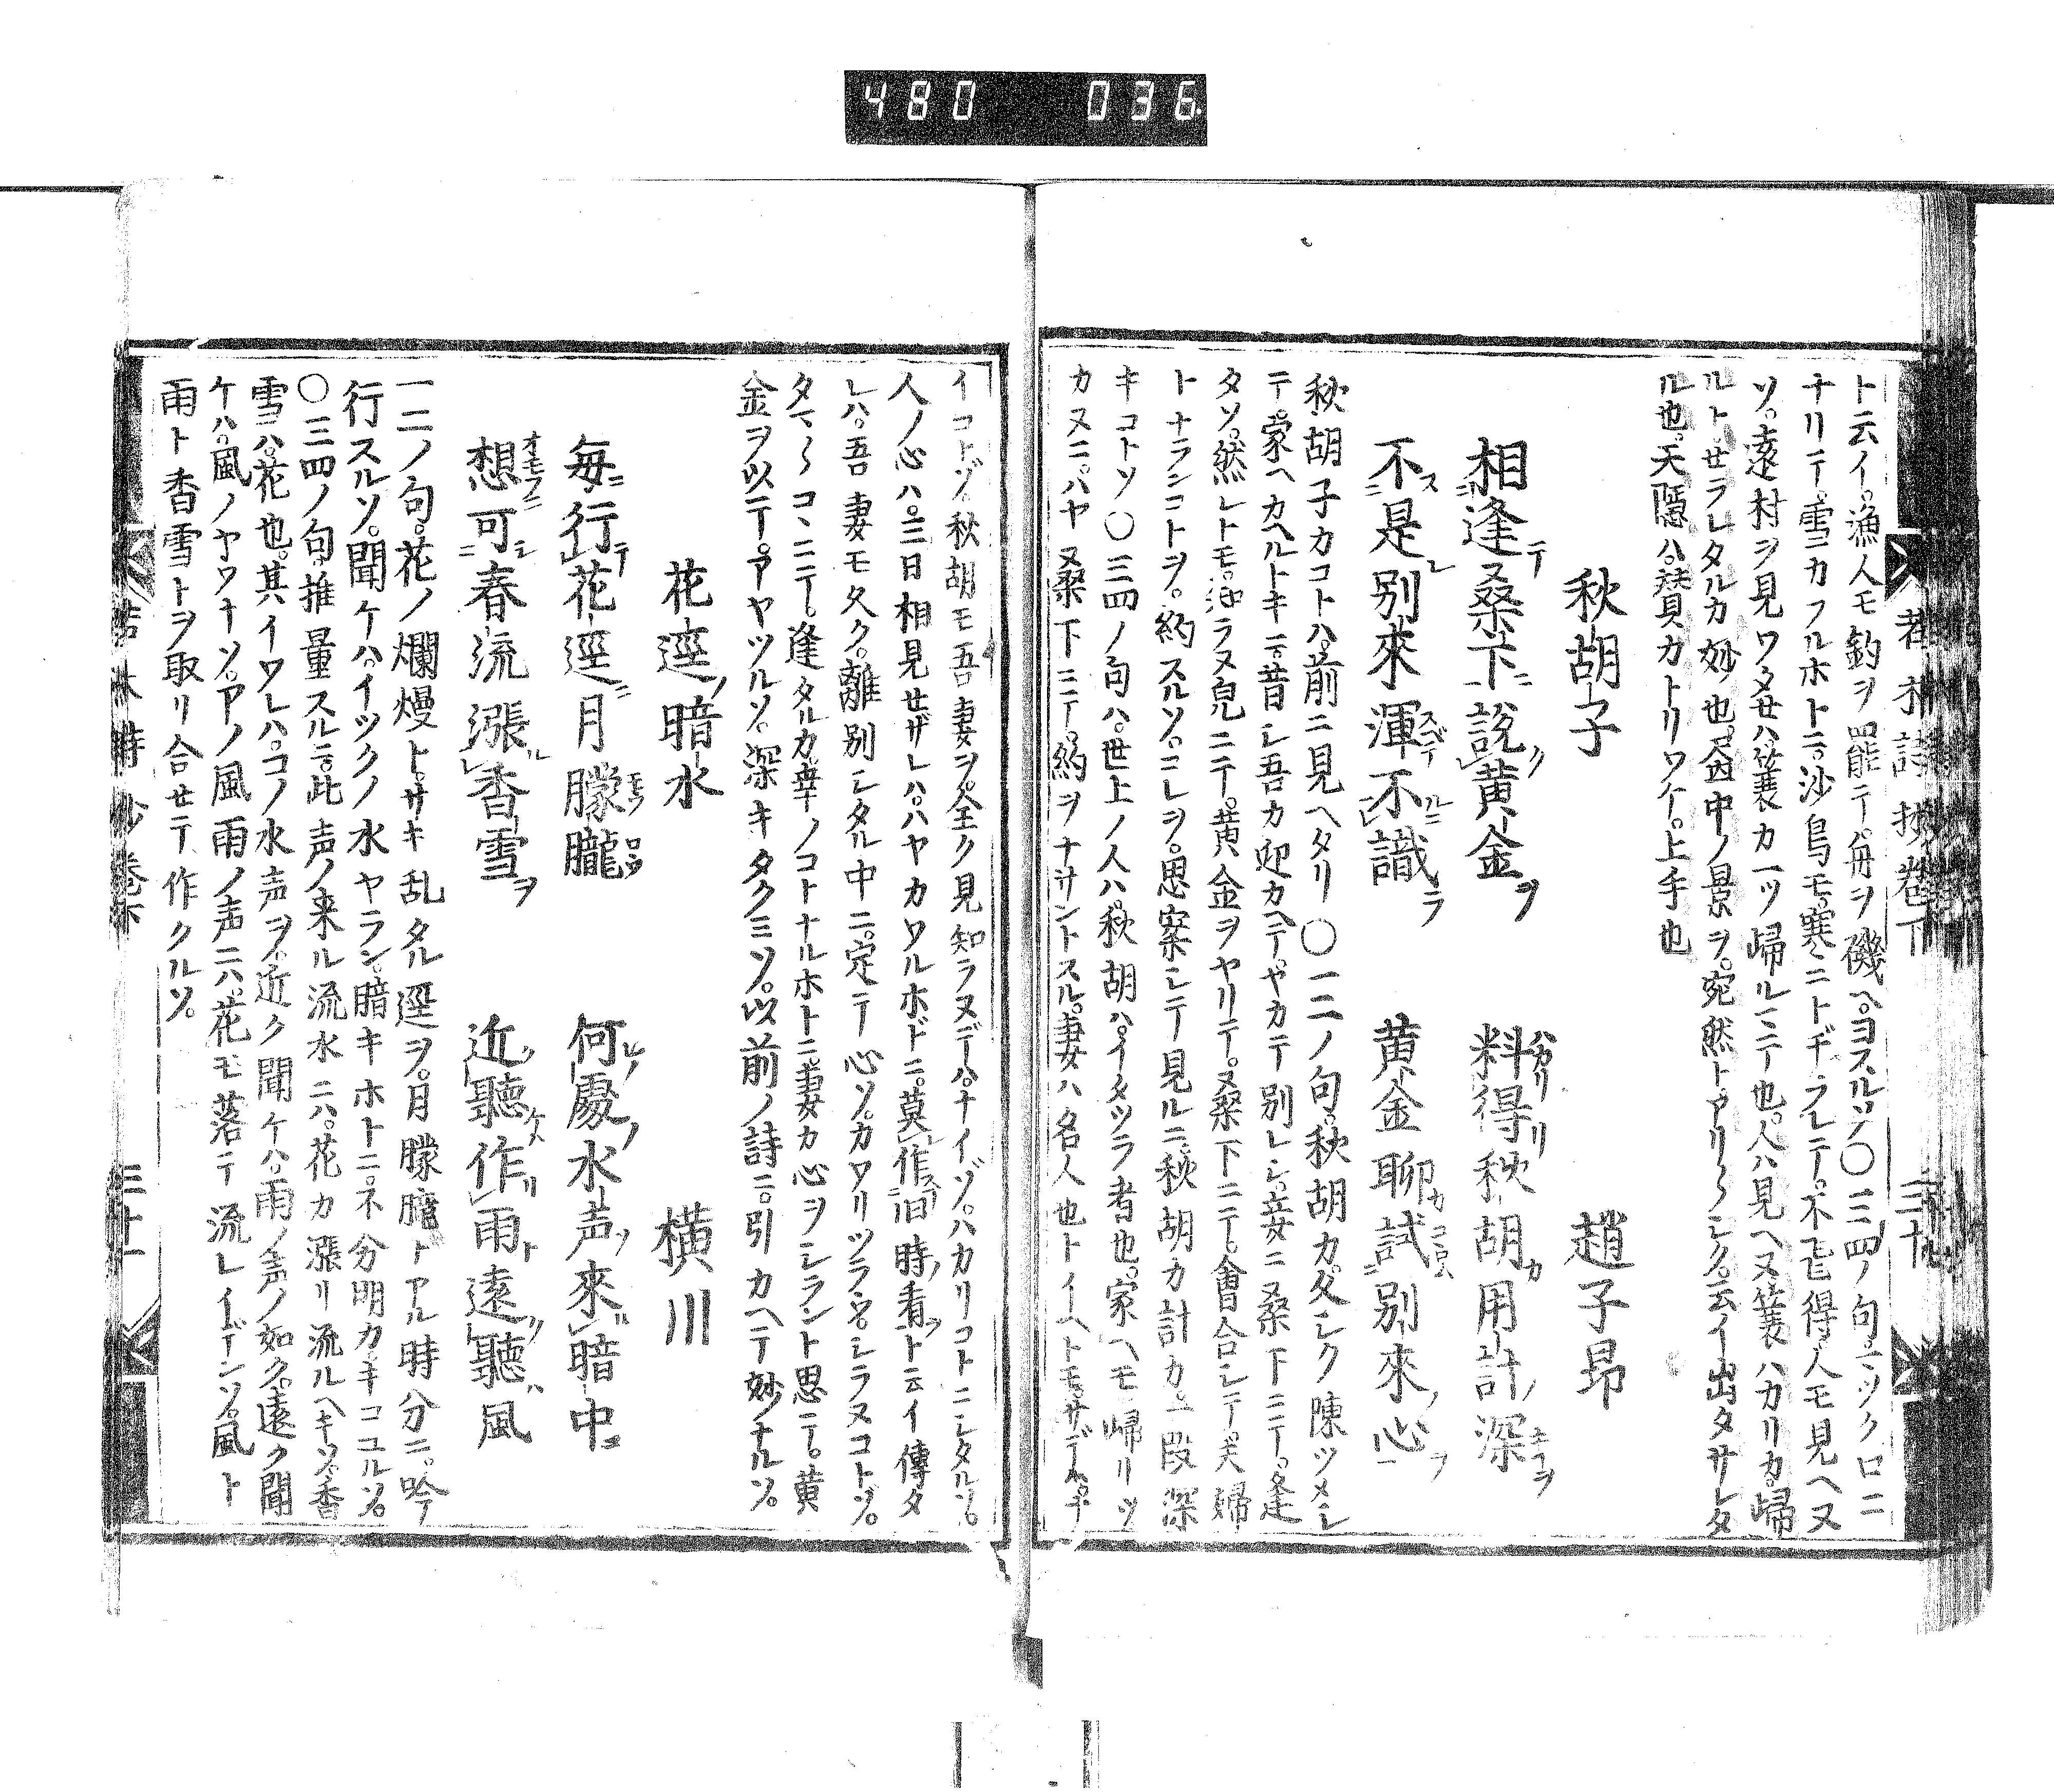 480 036
ト云イ。漁人モ釣ヲ罷テ。舟ヲ磯ヘ。ヨスルソ〇三四ノ句ミツクロニ
ナリテ。雪ニカフルホトニ。沙鳥モ。寒ニトヂラレテ。不飛得。人モ見ヘヌ
ソ。遠村ヲ見ワタせハ。簑カ一ツ帰ルニテ也。人ハ見ヘヌ。簑ハカリカ。帰
ルト。せラレタルカ妙也。畵中ノ景ヲ。宛然トアリ〱シク。云イ出タサレタ
ル也。天隠ハ。賛カトリワケ。上手也
秋胡子 趙子昂
相逢桑下説黄金 料得秋胡用計深
不是別來渾不識 黄金聊試別來心
秋胡子カコトハ。前ニ見ヘタリ〇一二ノ句。秋胡カ。久シク陳ツメシ
テ。家ヘカヘルトキニ。昔シ吾カ迎カヘテ。ヤカテ別レシ。妾ニ桑下ニテ。逢
タソ。然レトモ。知ラヌ皃ニテ。黄金ヲヤリテ。又桑下ニテ。會合シテ。夫婦
トナランコトヲ。約スルソ。コレヲ。思案シテ見ルニ。秋胡カ計カ一段深
キコトソ〇三四ノ句ハ。世上ノ人ハ。秋胡ハ。イタツラ者也。家ヘモ帰リツ
カヌニ。ハヤ又桑下ニテ。約ヲナサントスル。妻女ハ名人也トイヘトモ。サデハナ
イコトゾ。秋胡モ吾妻ヲ。全ク見知ラヌデハ。ナイゾ。ハカリコトニシタルソ。
人ノ心ハ。三日相見せザレハ。ハヤカワルホドニ。莫作旧時看ト云イ傳タ
レハ。吾妻モ久ク。離別シタル中ニ。定テ心ソ。カワリツラウ。シラヌコトゾ。
タマ〱コヽニテ。逢タルカ。幸ノコトナルホトニ。妻女カ心ヲシラント思テ。黄
金ヲ以テ。アヤツルソ。深キタクミソ。以前ノ詩ニ。引カヘテ妙ナルソ。
花逕暗水 横川
毎行花逕月朦朧 何處水声來暗中
想可春流漲香雪 近聽作雨遠聽風
一二ノ句。花ノ爛熳ト。サキ乱タル逕ヲ。月朦朧トアル時分ニ。吟
行スルソ。聞ケハ。イツクノ水ヤラン。暗キホトニ。不分明カ。キコユルソ。
〇三四ノ句。推量スルニ。此声ノ来ル流水ニハ。花カ漲リ流ルヘキソ。香
雪ハ。花也。其イワレハ。コノ水声ヲ。近ク聞ケハ。雨ノ声ノ如ク。遠ク聞
ケハ。風ノヤウナソ。アノ風雨ノ声ニハ。花モ落テ流レイデンソ。風ト
雨ト香雪トヲ取リ合せテ作クルソ。
三十一